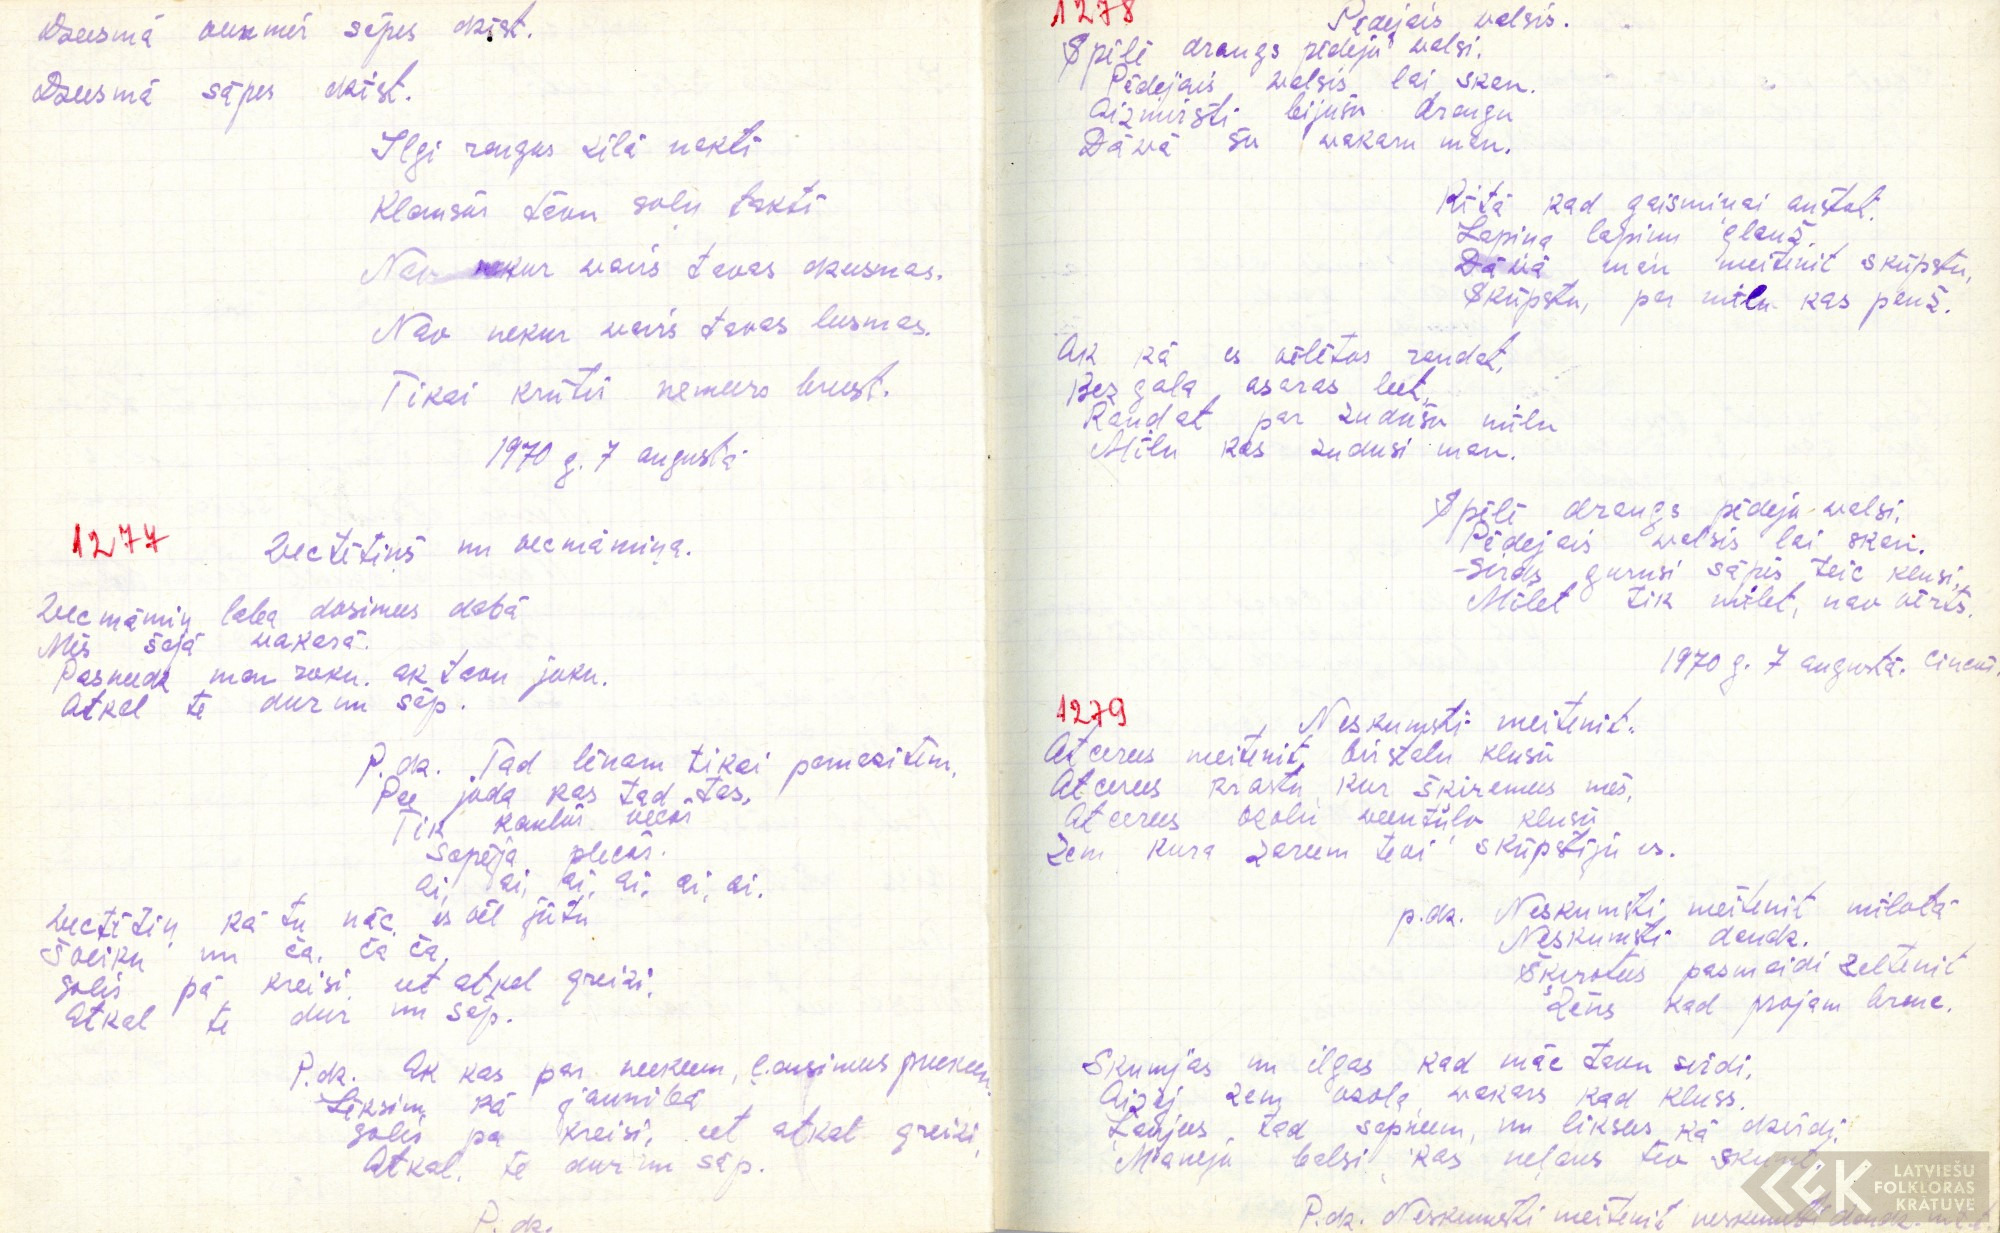 Dzeesmā veenmēr sāpes dzist.
Dzeesmā sāpes dzist.
Ilgi raugos zilā naktī
Klausos tavu soļu taktī
Nav nekur vairs tavas dzeesmas.
Nav nekur vairs tavas leesmas.
Tikai krūtīs nemeers breest.
1970 g. 7 augustā.
1277
Vectētiņš un vecmāmiņa.
Vecmāmiņ laba dosimees dabā
Mēs šajā vakarā.
Pasneedz man roku. ak tavu joku.
Atkal te dur un sāp.
P.dz. Tad lēnam tikai pamazītēm,
Pee joda kas tad tas,
Tik kauliņ vecos
Sāpēja plecos.
ai, ai, ai, ai, ai, ai.
Vectētiņ kā tu nāc, es vēl jūtu
Šveiku un ča, ča ča,
solis pa kreisi, eet atkal greizi,
Atkal te dur un sāp.
P.dz. Ak kas par neekeem, ļausimees preekeem,
Lēksim kā jaunībā
solis pa kreisi, eet atkal greizi,
Atkal, te dur un sāp.
P.dz.
1278
Pēdējais valsis.
Spēlē draugs pēdējo valsi.
Pēdējais valsis lai skan.
Aizmirsti bijušu draugu
Dāvā šu vakaru man.
Rītā kad gaismiņai austot.
Lapiņa lapiņu glauž.
Dāvā man meitenīt skūpstu,
Skūpstu, par mīlu kas pauž.
Ak kā es vēlētos raudāt,
Bez gala asaras leet,
Raudāt par zudušu mīlu
Mīlu kas zudusi man.
Spēlē draugs pēdējo valsi,
Pēdējais valsis lai skan.
Sirds gurusi sāpēs teic klusi,
Mīlēt tik mīlēt, nav vērts.
1970 g. 7 augustā.
1279
Neskumsti meitenīt.
Atcerees meitenīt birztalu klusu
Atcerees krastu kur šķirāmees mēs,
Atcerees ozolu veentuļo klusu
Zem kura zareem tevi skūpstīju es.
p.dz. Neskumsti meitenīt mīļotā
Neskumsti daudz.
Šķirotees pasmaidi zeltenīt
Zēns kad projām brauc.
Skumjas un ilgas kad māc tavu sirdi,
Aizej zem ozola vakars kad kluss.
Ļaujees tad sapņeem, un liksees kā dzirdi
Manējo balsi, kas neļaus tev skumt.
P.dz. Neskumsti meitenīt neskumsti daudz.
LATVIEŠU
FOLKLORAS
KRĀTUVE